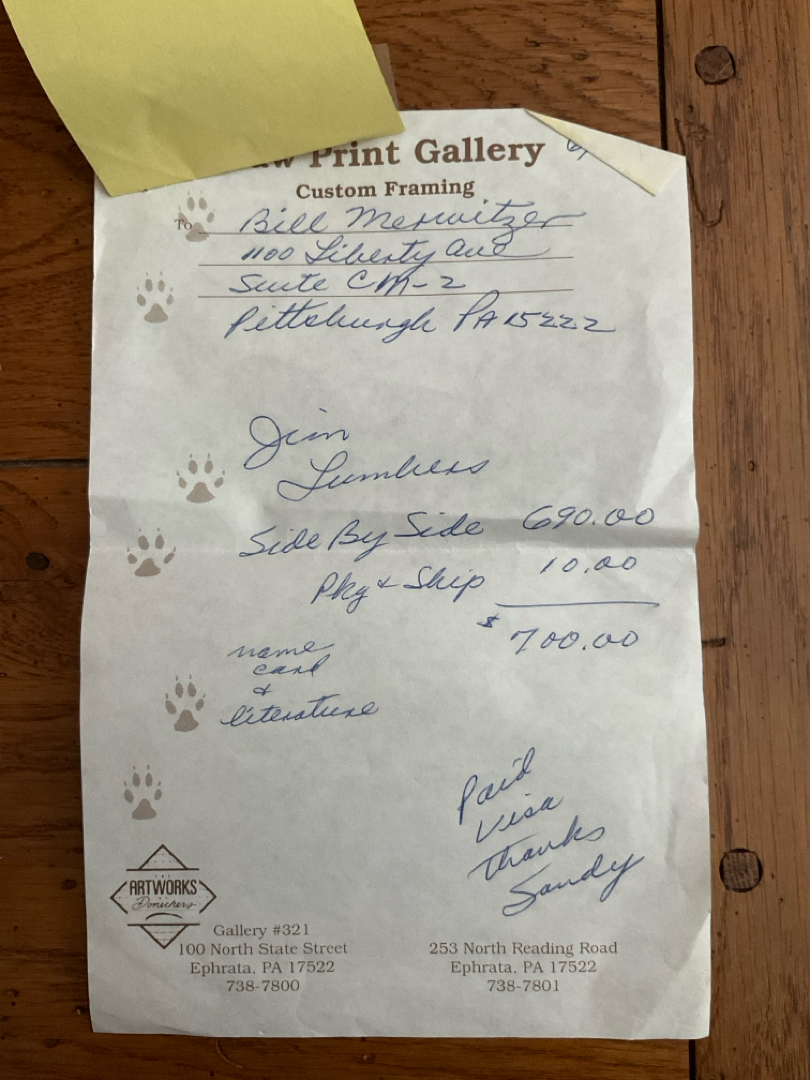 Print Gallery
Custom Framing
To Bill Merwitzer
1100 Liberty Ave
Suite CM-2
Pittsburgh PA 15222
Jim
Lumbers
Side By Side 690.00
Pkg & Ship 10.00
$ 700.00
name
card
&
literature
Paid
Visa
Thanks
Sandy
ARTWORKS
Doneckers
Gallery #321
100 North State Street
Ephrata, PA 17522
738-7800
253 North Reading Road
Ephrata, PA 17522
738-7801